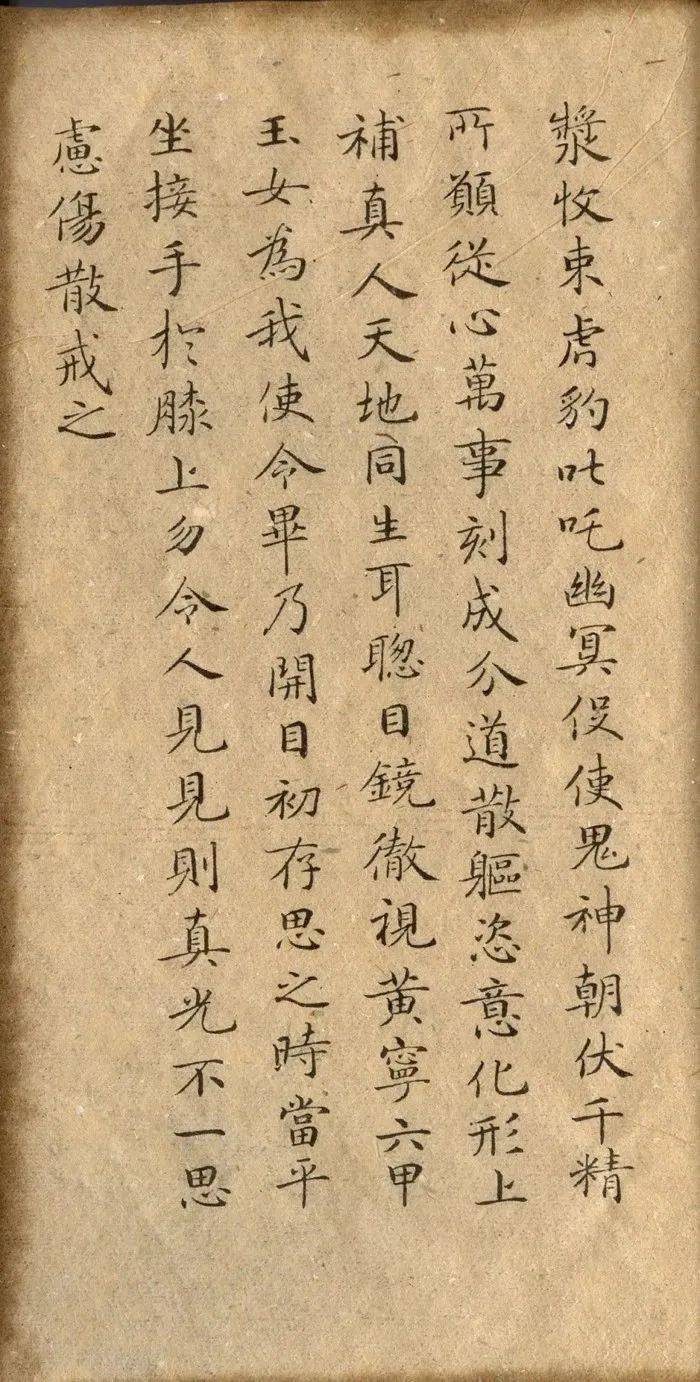 漿收束虎豹叱吒幽冥役使鬼神朝伏千精
所願從心萬事剋成分道散軀恣意化形上
補真人天地同生耳聰目鏡徹視黃寧六甲
玉女為我使令畢乃開目初存思之時當平
坐接手於膝上勿令人見見則真光不一思
慮傷散戒之